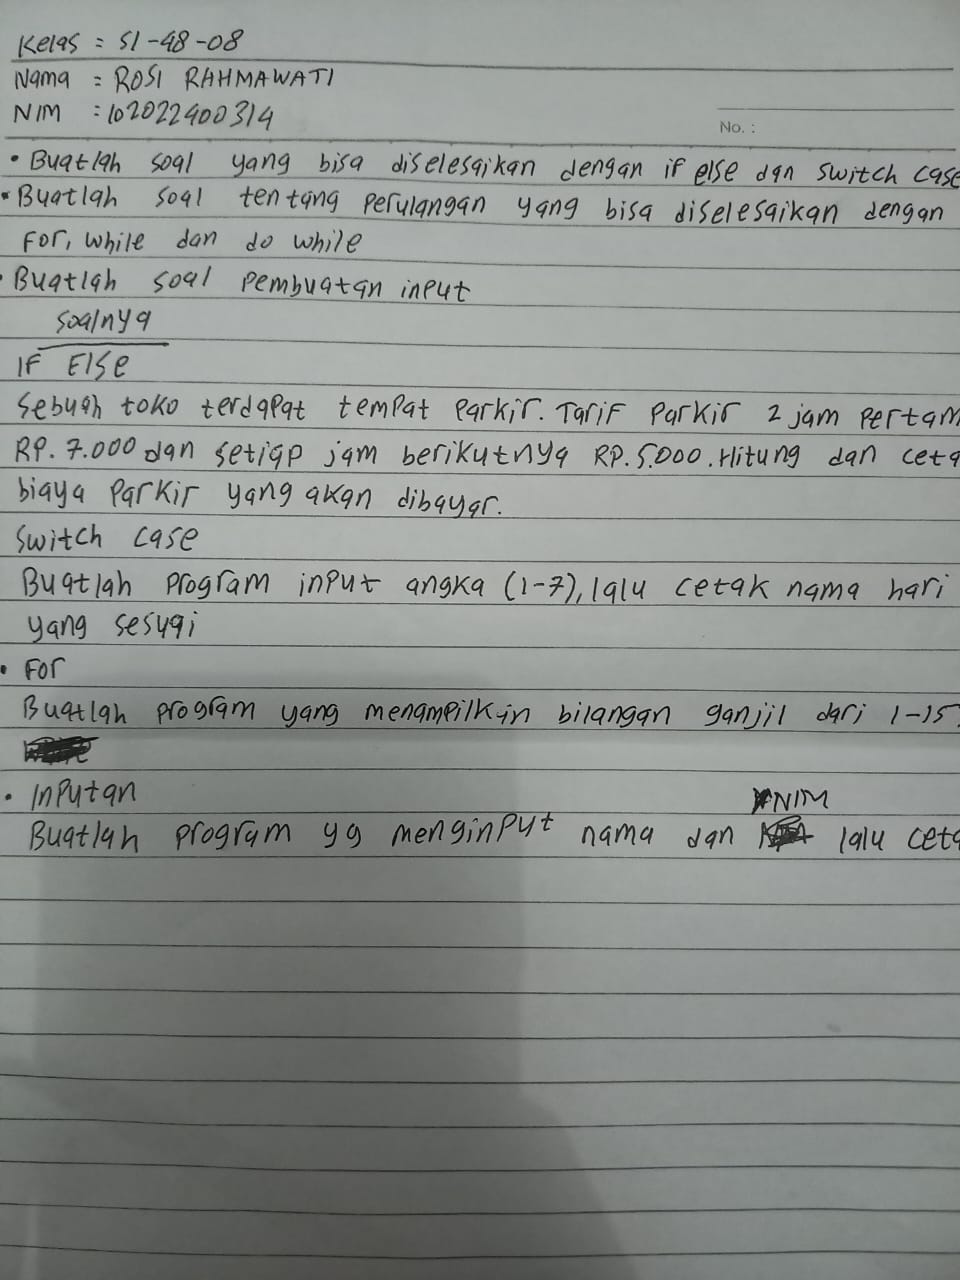 Kelas = SI-48-08
Nama = ROSI RAHMAWATI
NIM : 102022400314
No. :
• Buatlah soal yang bisa diselesaikan dengan if else dan switch case
• Buatlah soal tentang perulangan yang bisa diselesaikan dengan
For, while dan do while
• Buatlah soal pembuatan input
soalnya
IF Else
Sebuah toko terdapat tempat parkir. Tarif parkir 2 jam pertam
RP. 7.000 dan setiap jam berikutnya RP. 5.000. Hitung dan ceta
biaya parkir yang akan dibayar.
Switch case
Buatlah program input angka (1-7), lalu cetak nama hari
yang sesuai
• For
Buatlah program yang menampilkin bilangan ganjil dari 1-15.
• Inputan
NIM
Buatlah program yg menginput nama dan lalu ceta